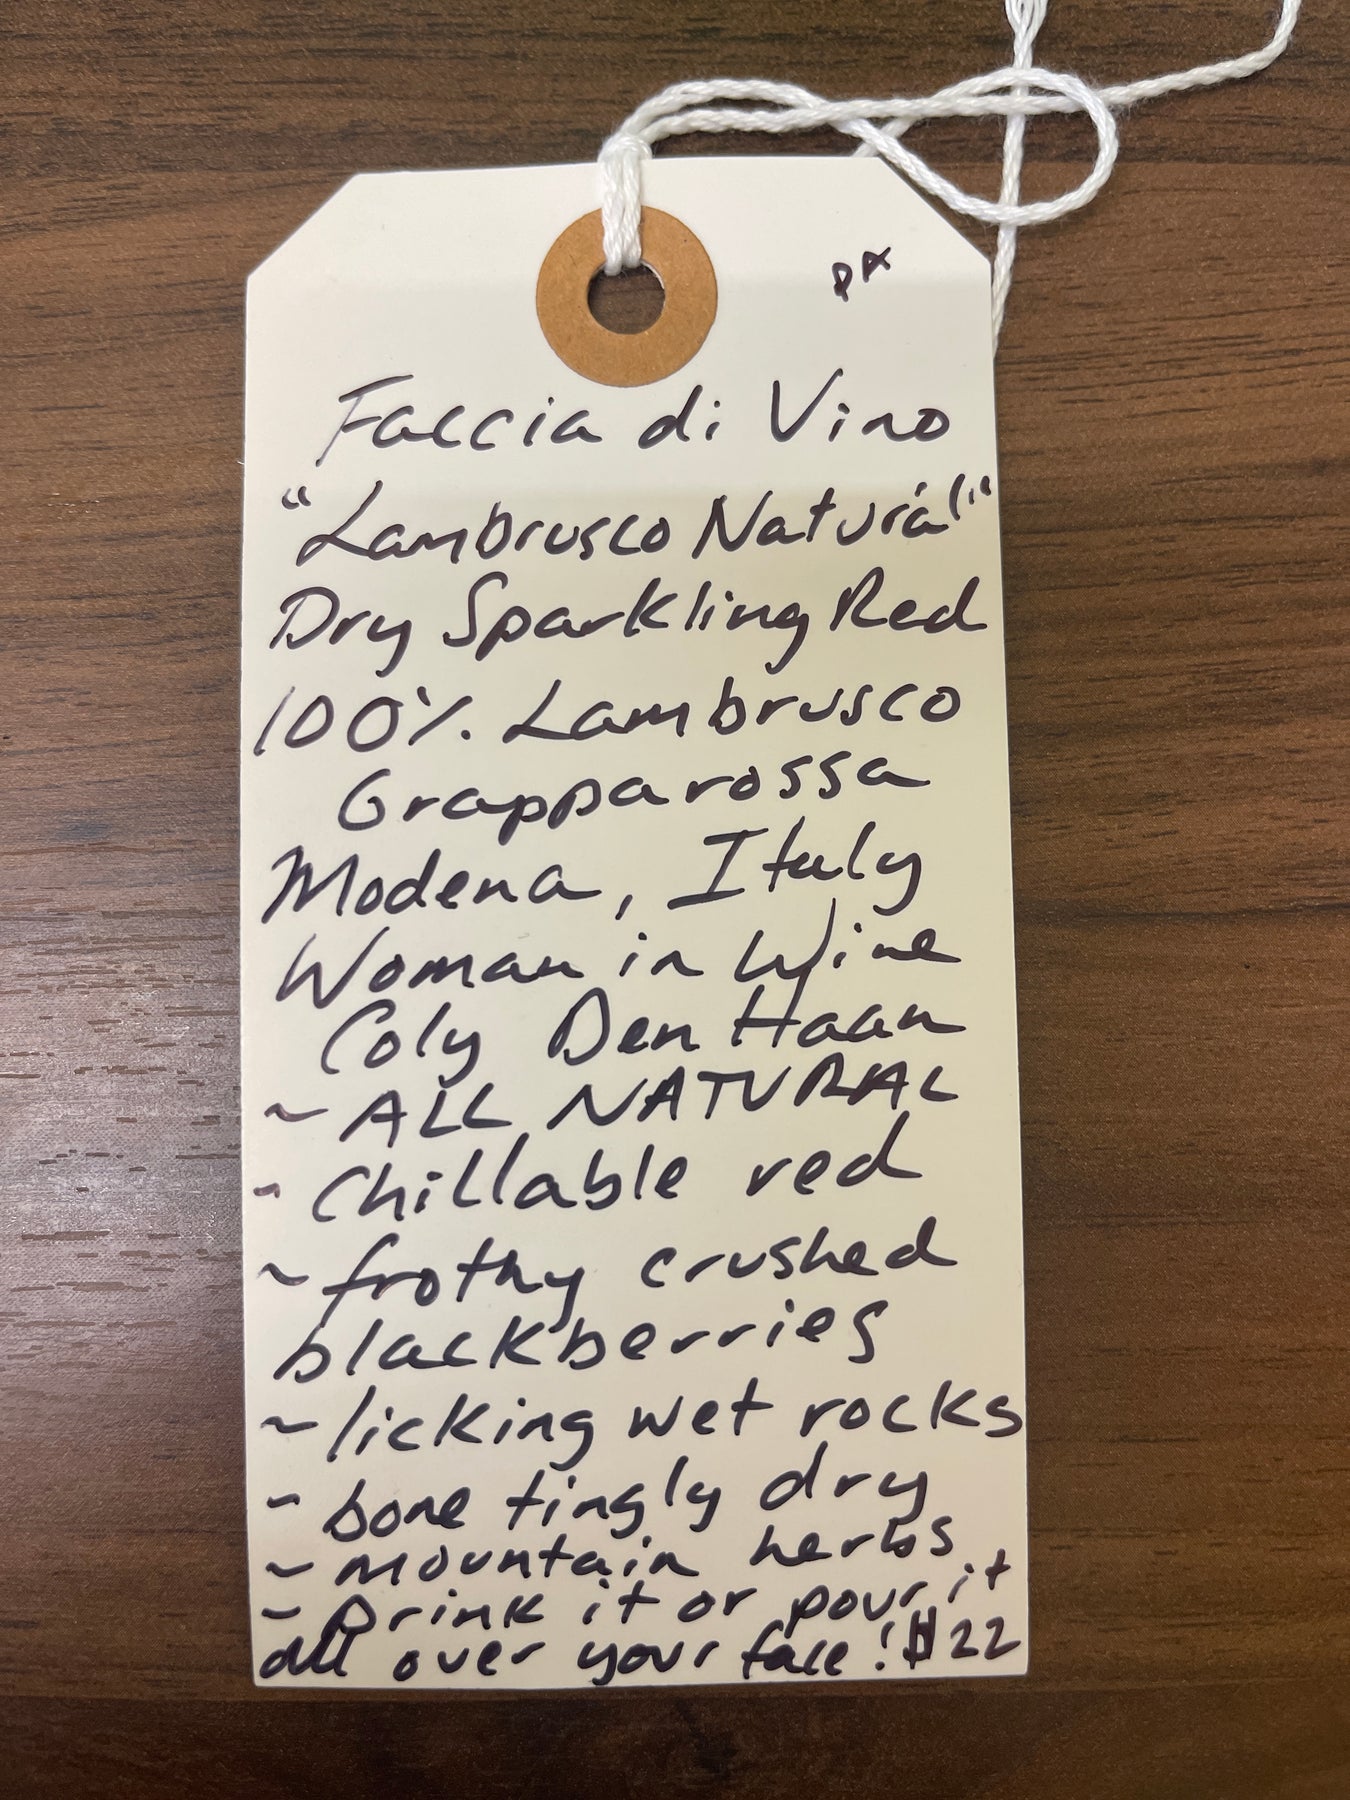 PA
Faccia di Vino
"Lambrusco Naturál"
Dry Sparkling Red
100% Lambrusco
Grapparossa
Modena, Italy
Woman in Wine
Coly Den Haan
~ ALL NATURAL
- Chillable red
~ frothy crushed
blackberries
~ licking wet rocks
~ bone tingly dry
~ mountain herbs
~ Drink it or pour it
all over your face! $22